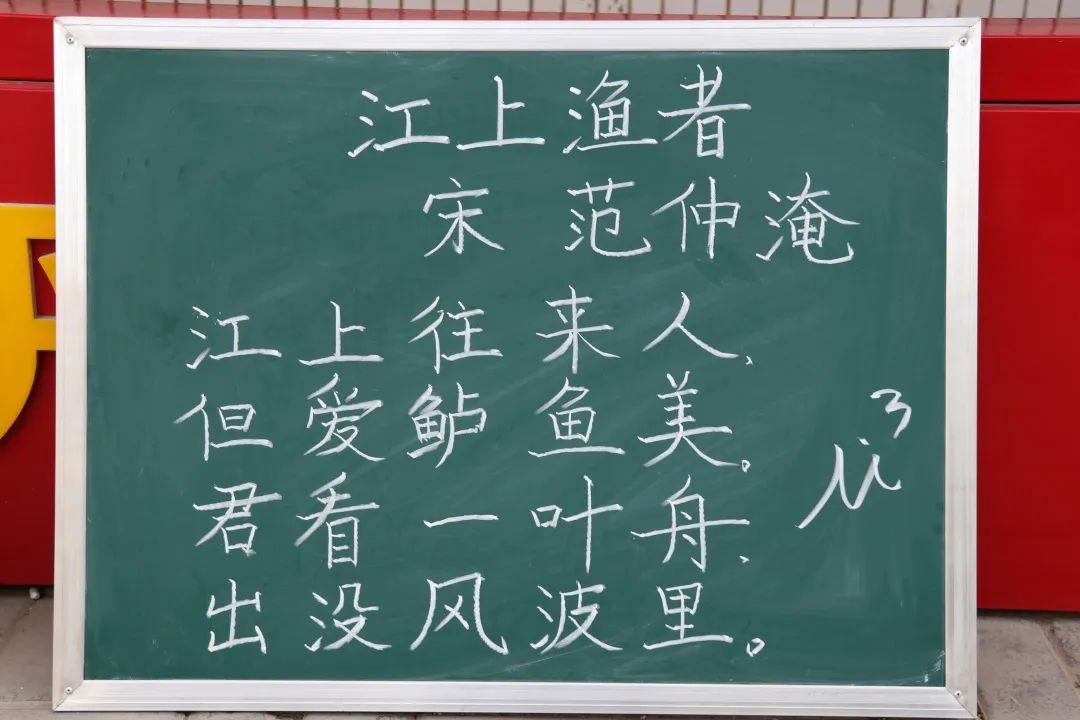 江上渔者
宋 范仲淹
江上往来人、
但爱鲈鱼美。
君看一叶舟、
出没风波里。